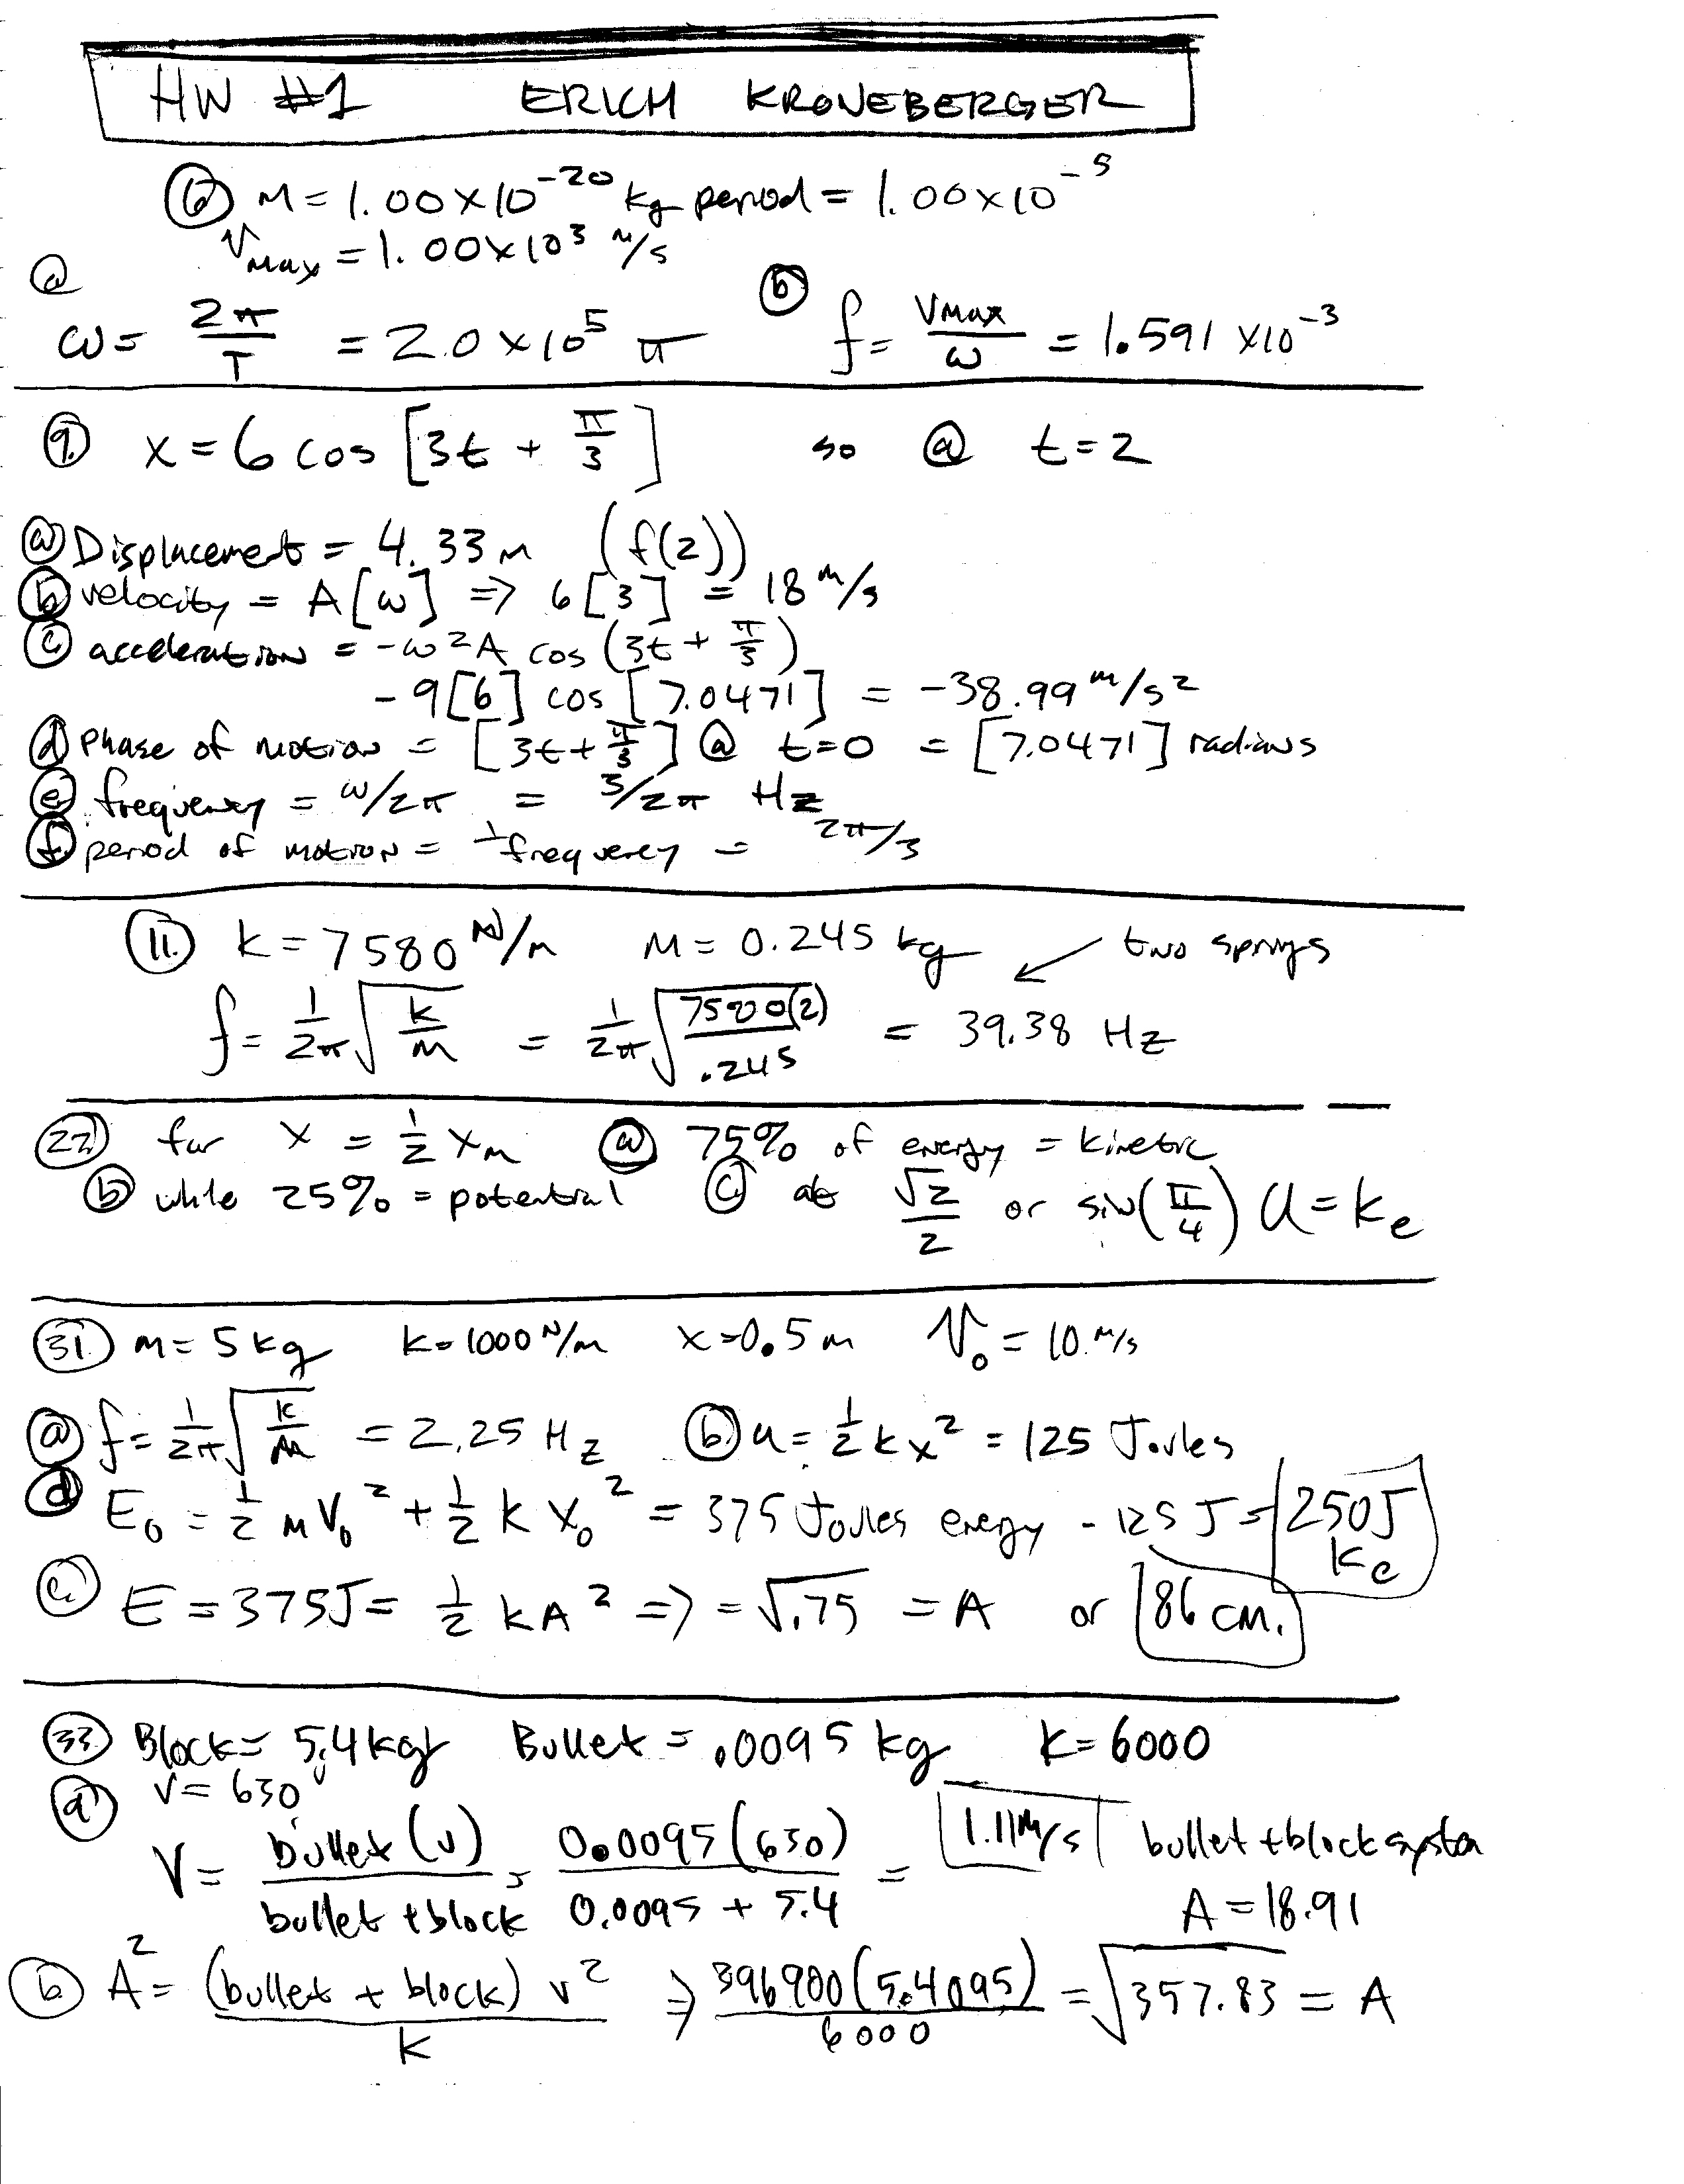 HW #1 ERICH KRONEBERGER
6 M = 1.00 × 10^-20 kg period = 1.00 × 10^-5
Vmax = 1.00 × 10^3 m/s
a
ω = 2π/T = 2.0 × 10^5 π
b f = Vmax/ω = 1.591 × 10^-3
9. x = 6 cos [3t + π/3] so @ t = 2
a Displacement = 4.33 m (f(2))
b velocity = A[ω] => 6[3] = 18 m/s
c acceleration = -ω^2 A cos (3t + π/3)
-9[6] cos [7.0471] = -38.99 m/s^2
d Phase of motion = [3t + π/3] @ t=0 = [7.0471] radians
e frequency = ω/2π = 3/2π Hz
f. period of motion = 1/frequency = 2π/3
11. k = 7580 N/m M = 0.245 kg ↙ two springs
f = 1/2π √(k/m) = 1/2π √(7580(2)/.245) = 39.38 Hz
22) for x = 1/2 xm a 75% of energy = kinetic
b while 25% = potential c at √2/2 or sin(π/4) U = ke
31. m = 5 kg k = 1000 N/m x = 0.5 m V0 = 10 m/s
a f = 1/2π √(k/m) = 2.25 Hz b. u = 1/2 k x^2 = 125 Joules
d E0 = 1/2 m V0^2 + 1/2 k x0^2 = 375 Joules energy - 125 J = 250J ke
E = 375J = 1/2 kA^2 => = √.75 = A or 86 cm.
33 Block = 5.4 kg Bullet = .0095 kg k = 6000
a v = 630
V = bullet (v)/bullet + block = 0.0095(630)/0.0095 + 5.4 = 1.11 m/s bullet + block system
A = 18.91
b A^2 = (bullet + block) v^2/k => 396900(5.4095)/6000 = √357.83 = A